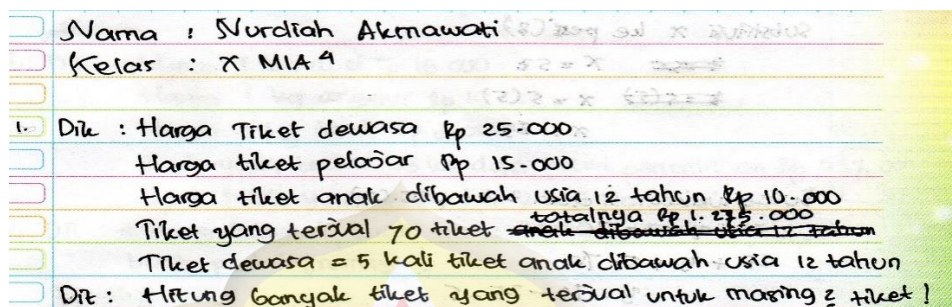 Nama : Nurdiah Akmawati
Kelas : X MIA 4
1. Dik : Harga Tiket dewasa Rp 25.000
Harga tiket pelajar Rp 15.000
Harga tiket anak dibawah usia 12 tahun Rp 10.000
Tiket yang terjual 70 tiket totalnya Rp 1.275.000 ~~anak dibawah usia 12 tahun~~
Tiket dewasa = 5 kali tiket anak dibawah usia 12 tahun
Dit : Hitung banyak tiket yang terjual untuk masing2 tiket !